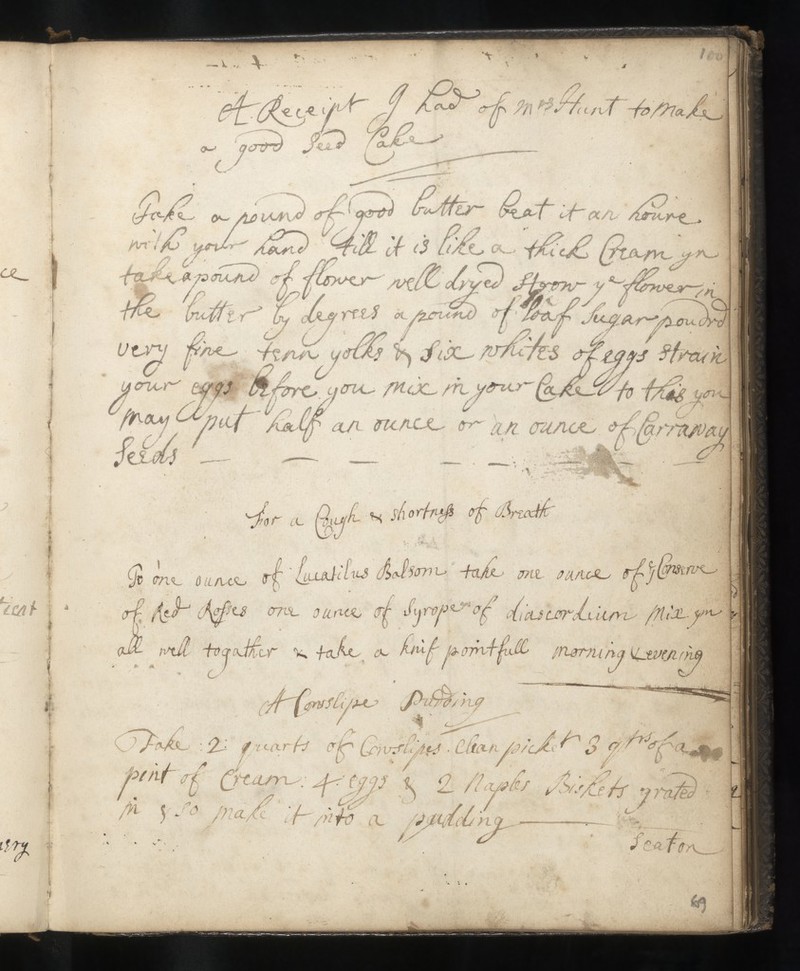 100
A Receipt I had of Mrs Hunt to make
a good Seed Cake
Take a pound of good butter beat it an houre
with your hand till it is like a thick Cream yn
take a pound of flower well dryed strow ye flower in
the butter by degrees a pound of loaf Sugar poudrd
very fine tenn yolks & Six whites of eggs strain
your eggs before you mix in your Cake to this you
may put half an ounce or an ounce of Carraway
Seeds
For a Cough & shortness of Breath
To one ounce of Lucatilus Balsom take one ounce of ye Conserve
of Red Roses one ounce of Syrope of diascordium Mix ym
all well togather & take a knif pointfull morning & evening
A Cowslipe Pudding
Take 2 quarts of Cowslipes clean pickt 3 qtrs of a
pint of Cream : 4 eggs & 2 Naples Biskets grated
in & so make it into a pudding
Seaton
69